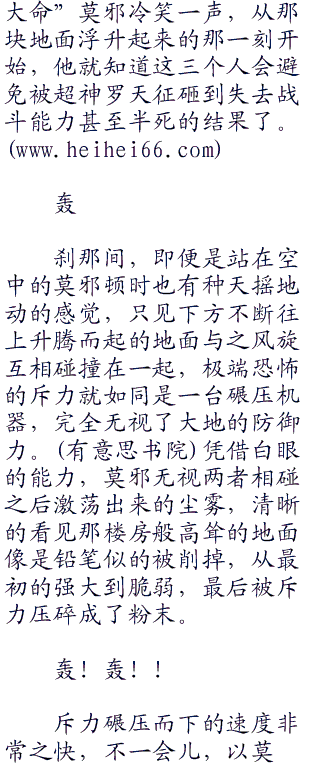 大命”莫邪冷笑一声，从那
块地面浮升起来的那一刻开
始，他就知道这三个人会避
免被超神罗天征砸到失去战
斗能力甚至半死的结果了。
(www.heihei66.com)
轰
刹那间，即便是站在空
中的莫邪顿时也有种天摇地
动的感觉，只见下方不断往
上升腾而起的地面与之风旋
互相碰撞在一起，极端恐怖
的斥力就如同是一台碾压机
器，完全无视了大地的防御
力。(有意思书院)凭借白眼
的能力，莫邪无视两者相碰
之后激荡出来的尘雾，清晰
的看见那楼房般高耸的地面
像是铅笔似的被削掉，从最
初的强大到脆弱，最后被斥
力压碎成了粉末。
轰！轰！！
斥力碾压而下的速度非
常之快，不一会儿，以莫